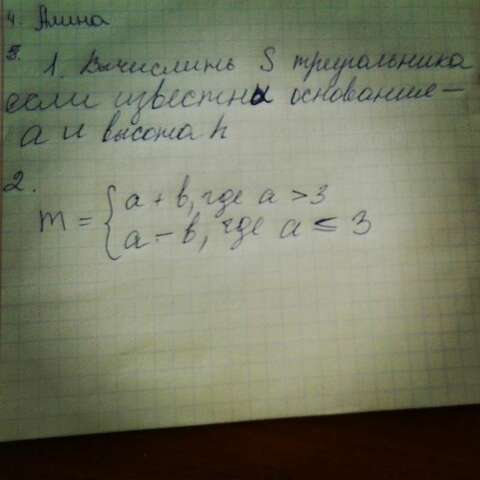 4. Алина
5.
1. Вычислить S треугольника
если известны основание –
a и высота h
2.
m = { a + b, где a > 3
a – b, где a ≤ 3